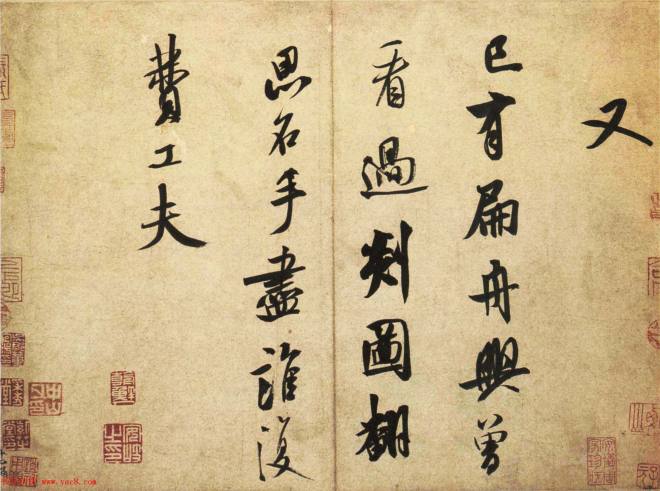 又
已有扁舟興曾
看過剡圖翻
思名手盡誰復
費工夫
www.yac8.com